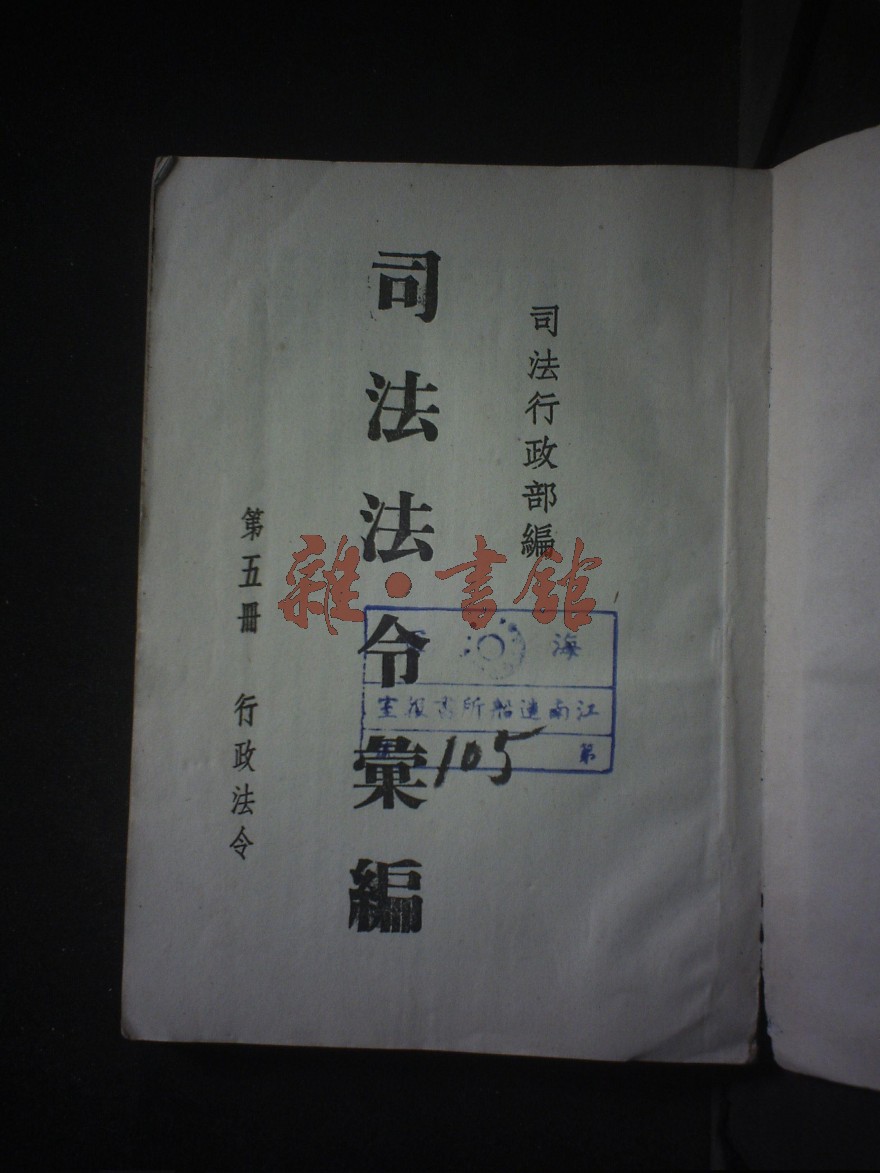 司法行政部編
司法法令彙編
第五冊 行政法令
雜·書館
海
江南造船所書报室
第
105